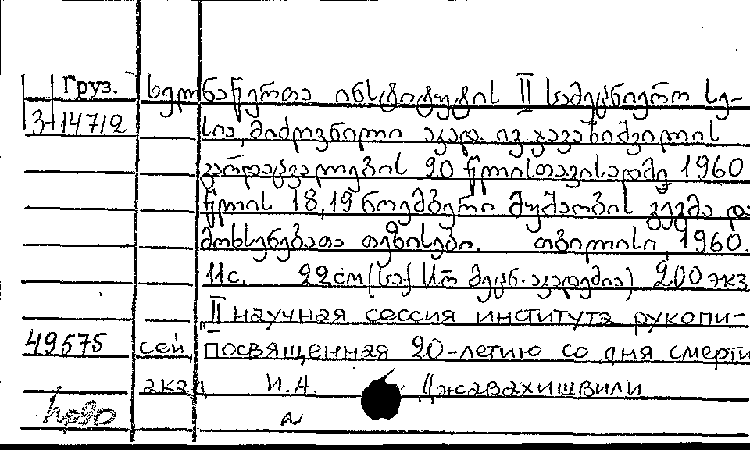 Груз. ხელნაწერთა ინსტიტუტის II სამეცნიერო სე-
3-14712 სია, მიძღვნილი აკად. ივ. ჯავახიშვილის
გარდაცვალების 20 წლისთავისადმი 1960
წლის 18,19 ნოემბერი მუშაობის გეგმა და
მოხსენებათა თეზისები. თბილისი, 1960.
11с. 22см (საქ სსრ მეცნ. აკადემია) 200 экз
"II научная сессия института рукопи-
49575 сей, посвященная 20-летию со дня смерти
акад И.А. Джавахишвили